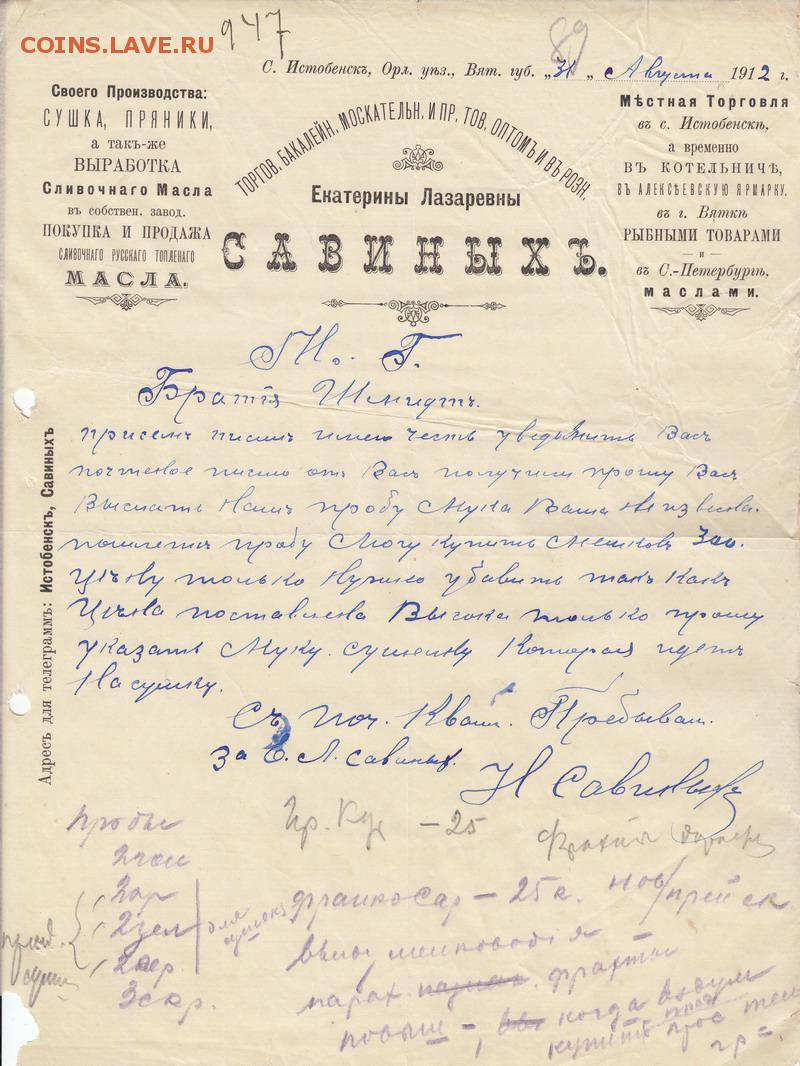 COINS.LAVE.RU
947
89
С. Истобенскъ, Орл. уѣз., Вят. губ. „31„ Августа 1912 г.
Своего Производства:
СУШКА, ПРЯНИКИ,
а такъ-же
ВЫРАБОТКА
Сливочнаго Масла
въ собствен. завод.
ПОКУПКА И ПРОДАЖА
СЛИВОЧНАГО РУССКАГО ТОПЛЕНАГО
МАСЛА.
ТОРГОВ. БАКАЛЕЙН., МОСКАТЕЛЬН. И ПР. ТОВ. ОПТОМЪ И ВЪ РОЗН.
Екатерины Лазаревны
САВИНЫХЪ.
Мѣстная Торговля
въ с. Истобенскѣ,
а временно
ВЪ КОТЕЛЬНИЧѢ,
ВЪ АЛЕКСѢЕВСКУЮ ЯРМАРКУ,
въ г. Вяткѣ
РЫБНЫМИ ТОВАРАМИ
— и —
въ С.-Петербургѣ,
маслами.
Адресъ для телеграммъ: Истобенскъ, Савиныхъ
М. Г.
Братія Шмидтъ.
присемъ писмъ имею честь уведомить Васъ
почтеное писмо отъ Васъ получили прошу Васъ
Выслать Намъ пробу Мука Ваша
пробу Могу купить Мешковъ 300.
Цѣну только нужно убавить такъ какъ
Цѣна поставлена Высока только прошу
указать Муку которая идетъ
На сушку.
Съ поч. Квам. Пребываю.
За Е. Л. Савиных.
Н Савиныхъ
Пробы
Гр. Кух — 25
2 гол
2 ар
2 зел
3 скр.
для
сушек
франко Сар — 25 к. нов/прейск
парох. фрахты
повыш —, когда
купить
гр